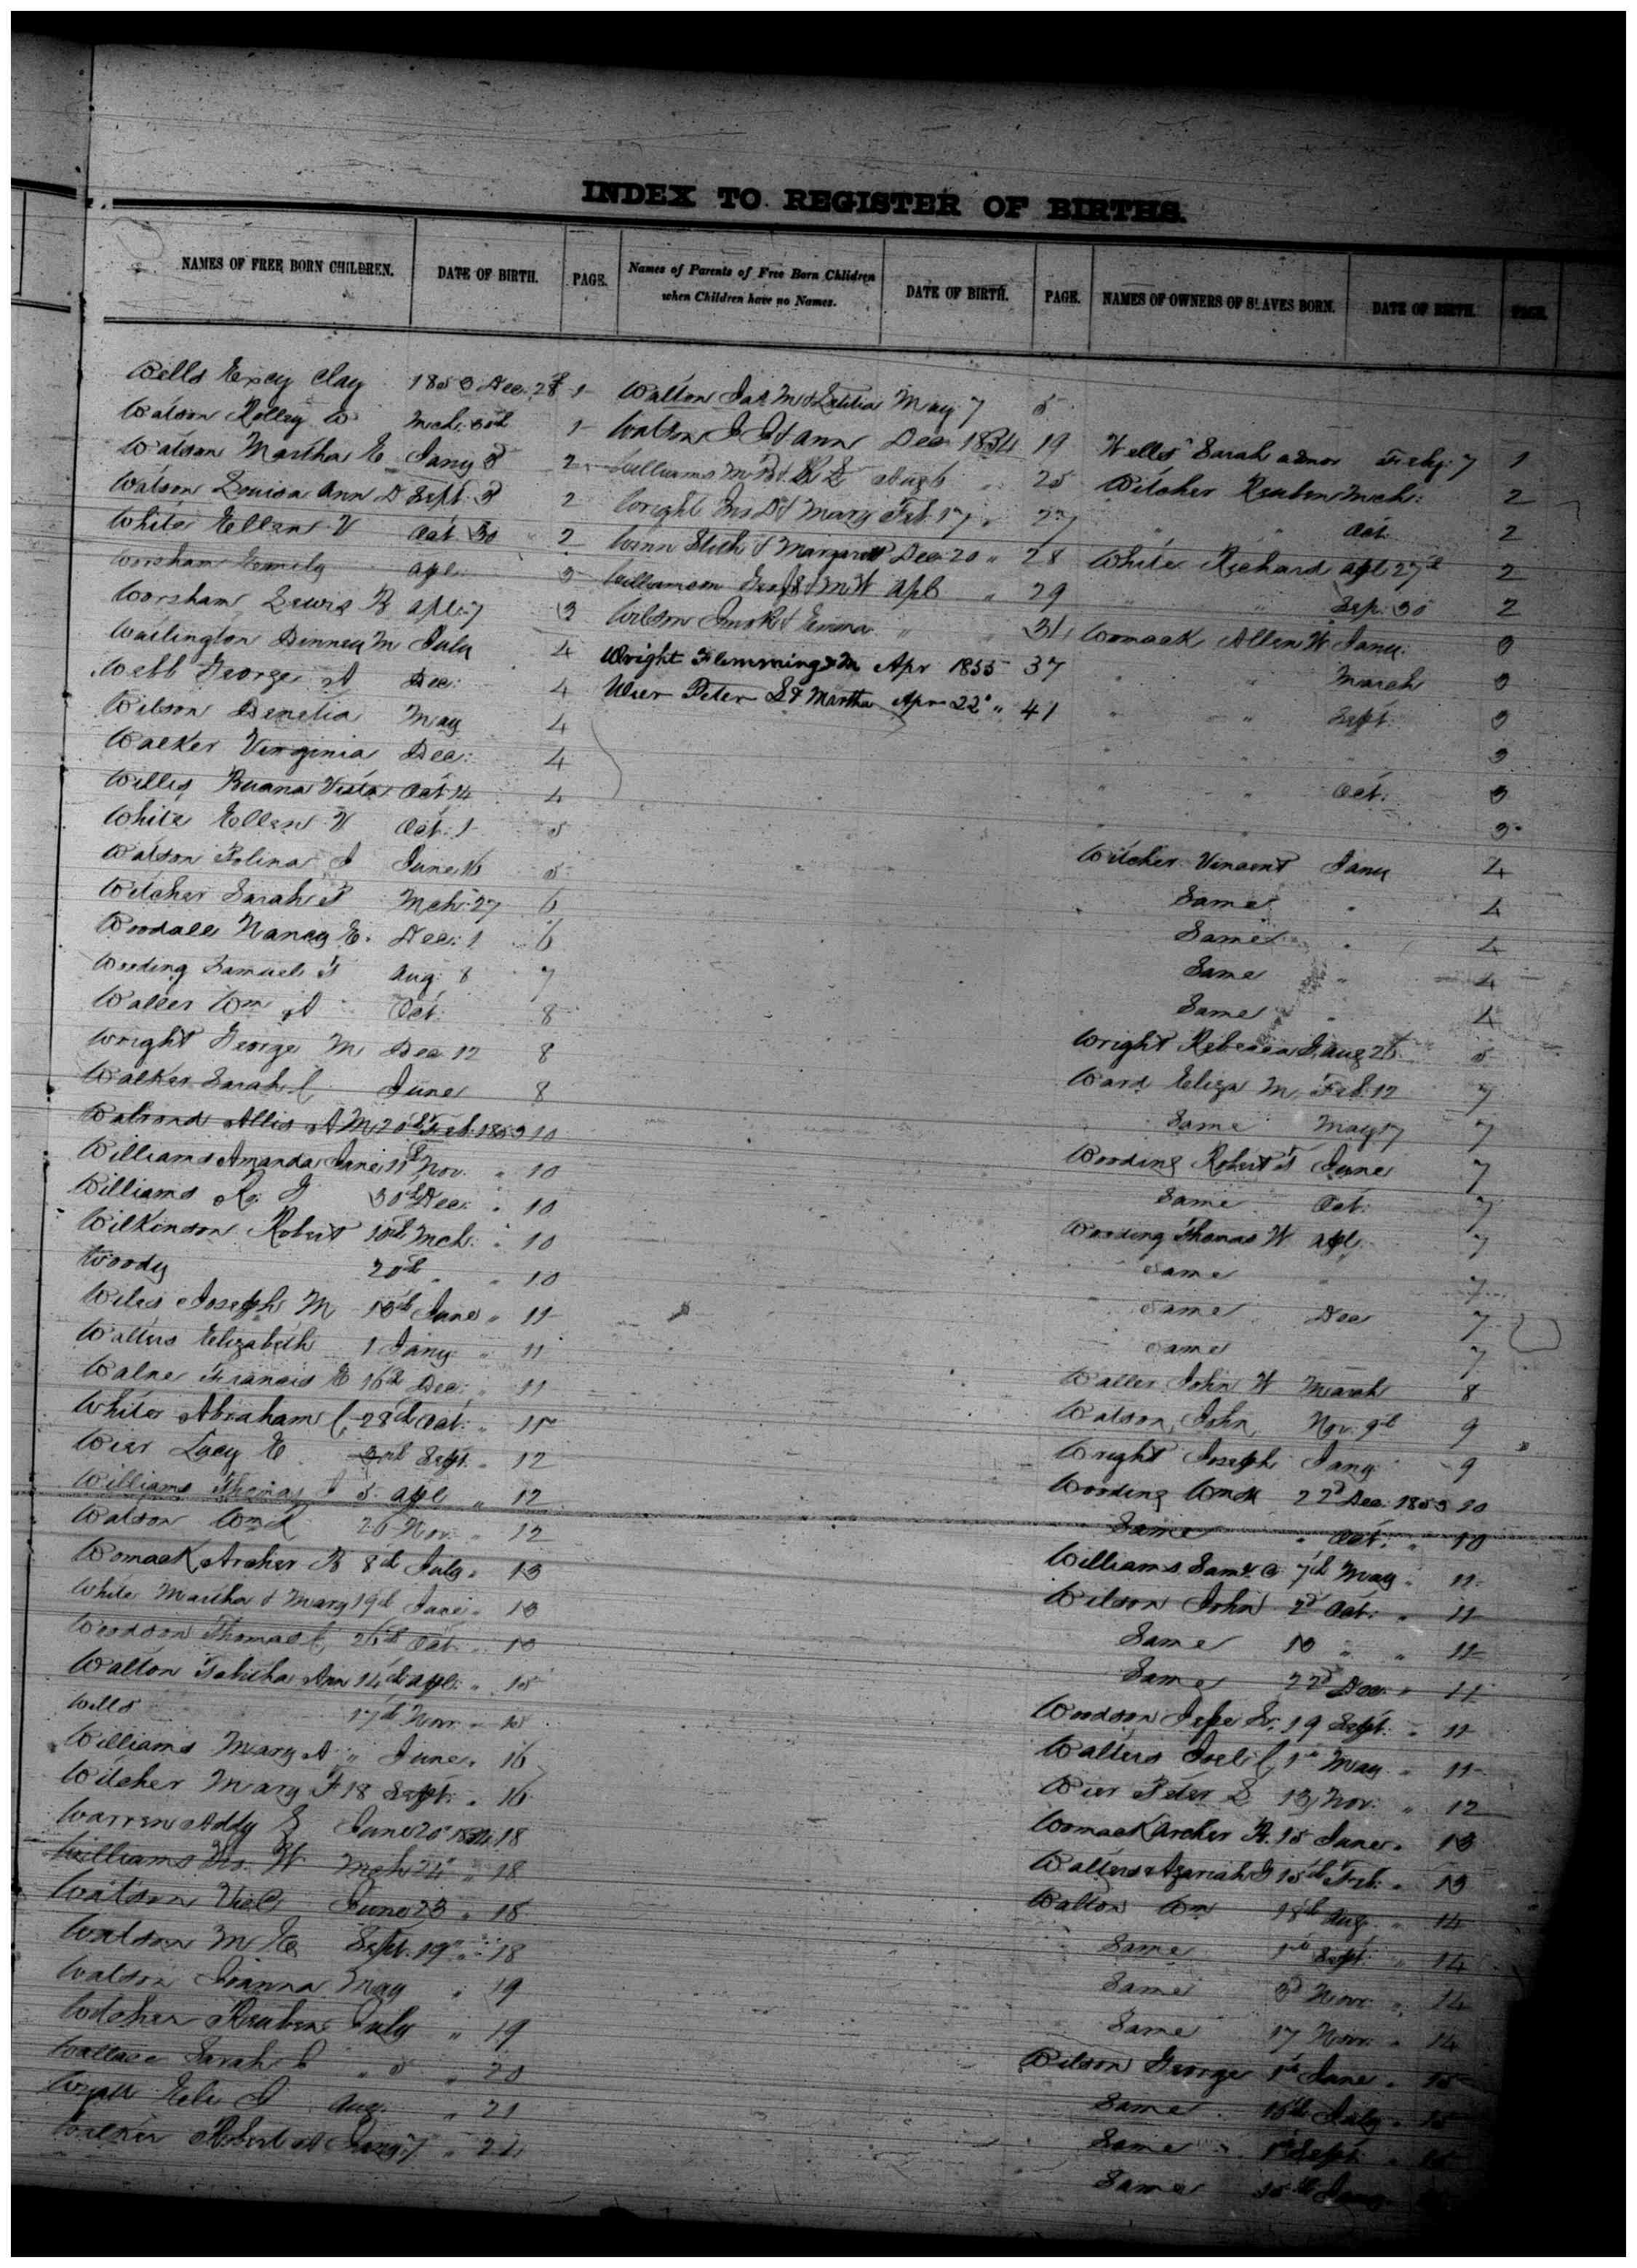 INDEX TO REGISTER OF BIRTHS.
NAMES OF FREE BORN CHILDREN.
DATE OF BIRTH.
PAGE.
Names of Parents of Free Born Children
when Children have no Names.
DATE OF BIRTH.
PAGE.
NAMES OF OWNERS OF SLAVES BORN.
DATE OF BIRTH.
PAGE.
Wells Clay 1853 Dec. 28 1
Watson Rolley W Mch. 30th 1
Watson Martha E Jany 3 2
Watson Louisa Ann D Sept. 3 2
White Ellen V Oct 30 2
Worsham Emily apl. 3
Worsham Lewis R apl. 7 3
Watlington Dinney M July 4
Webb George A Dec. 4
Wilson Denetia May 4
Walker Virginia Dec. 4
Willis Buana Vista Oct 14 4
White Ellen V Oct. 1 5
Watson Polina J June 16 5
Witcher Sarah T Mch. 27 6
Woodall Nancy E. Dec. 1 6
Wooding Samuel T Aug. 8 7
Waller Wm A Oct. 8
Wright George M Dec 12 8
Walker Sarah C June 8
Walrond Allis A M 20th Feb. 1853 10
Williams Amanda Jane Nov. " 10
Williams R. J 30th Dec. " 10
Wilkinson Robert 10th Mch. " 10
Woody 20th " " 10
Wiles Joseph M 13th June " 11
Walters Elizabeth 1 Jany " 11
Walne Francis E 16th Dec. " 11
White Abraham C. 28th Oct. " 11
Wier Lucy E 3rd Sept. " 12
Williams Thomas J 5 apl " 12
Watson Wm 26 Nov. " 12
Womack Archer R 8th July " 13
White Martha & Mary 19th June " 13
Woodson Thomas C 26th Oct. " 13
Walton Tabitha Ann 14th apl. " 15
Wells 17th Nov. " 15
Williams Mary A " June " 16
Witcher Mary F 18 Sept. " 16
Warren Addy S June 20" 1854 18
Williams W Mch 24" " 18
Watson June 23 " 18
Watson M Sept. 19" " 18
Watson Joanna May " 19
Witcher Reuben July " 19
Wallace Sarah " 5 " 20
Eli J Aug. " 21
Walker Robert A Jany 7 " 21
Walton Jas M & Letitia May 7 5
Watson J J & Ann Dec 1834 19
Williams M B & Aug 6 " 25
Wright Jno D & Mary Feb. 17 " 27
Winn & Margarett Dec 20 " 28
Williamson & M W apl 6 " 29
Wilson & Emma " " 31
Wright Flemming & M Apr 1855 37
Wier Peter D & Martha Apr 22" " 41
Welles Sarah admor Feby. 7 1
Witcher Reuben Mch. 2
" " Oct. 2
White Richard apl 27th 2
" " Sep. 30 2
Womack Allen W Jany. 3
" " March 3
" " Sept. 3
" " " 3
" " Oct. 3
" " 3
Witcher Vincent Jany 4
Same " 4
Same " 4
Same " 4
Same " 4
Wright Rebecca J Aug 26 5
Ward Eliza M. Feb. 12 7
Same May 17 7
Wooding Robert T June 7
Same Oct. 7
Wooding Thomas W apl. 7
Same " 7
Same Dec 7
Same 7
Waller John W March 8
Watson John Nov. 9th 9
Wright Joseph Jany 9
Wooding Wm H 22d Dec. 1853 10
Same " Oct. " 10
Williams Saml. C 7th May " 11
Wilson John 2d Oct. " 11
Same 13 " " 11
Same 22d Dec. " 11
Woodson Jesse Sr. 19 Sept. " 11
Walters Joel C. 1st May " 11
Wier Peter D 13 Nov. " 12
Womack Archer R. 15 June " 13
Walters Azariah G 15th Feb. " 13
Walton Wm 18th Aug. " 14
Same 1st Sept. " 14
Same 3d Nov. " 14
Same 17 Nov. " 14
Wilson George 1st June " 15
Same 15th July " 15
Same 1st Sept. " 15
Same 15th Jany